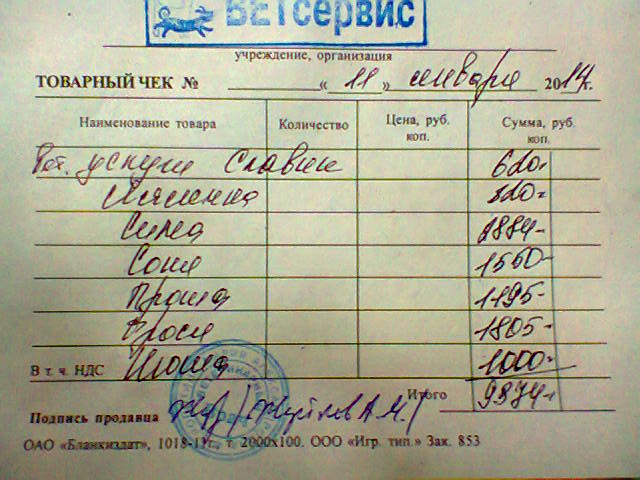 ВЕТсервис
учреждение, организация
ТОВАРНЫЙ ЧЕК № « 11 » января 2014г.
Наименование товара Количество Цена, руб. коп. Сумма, руб. коп.
Вет. услуги Славик 620-
320-
Сима 2884-
Соня 1550-
Проша 1195-
Фрося 1805-
В т. ч. НДС Нюша 1000-
Итого 9374-
Подпись продавца
ОАО «Бланкиздат», 1018-11г., т. 2000х100. ООО «Игр. тип.» Зак. 853